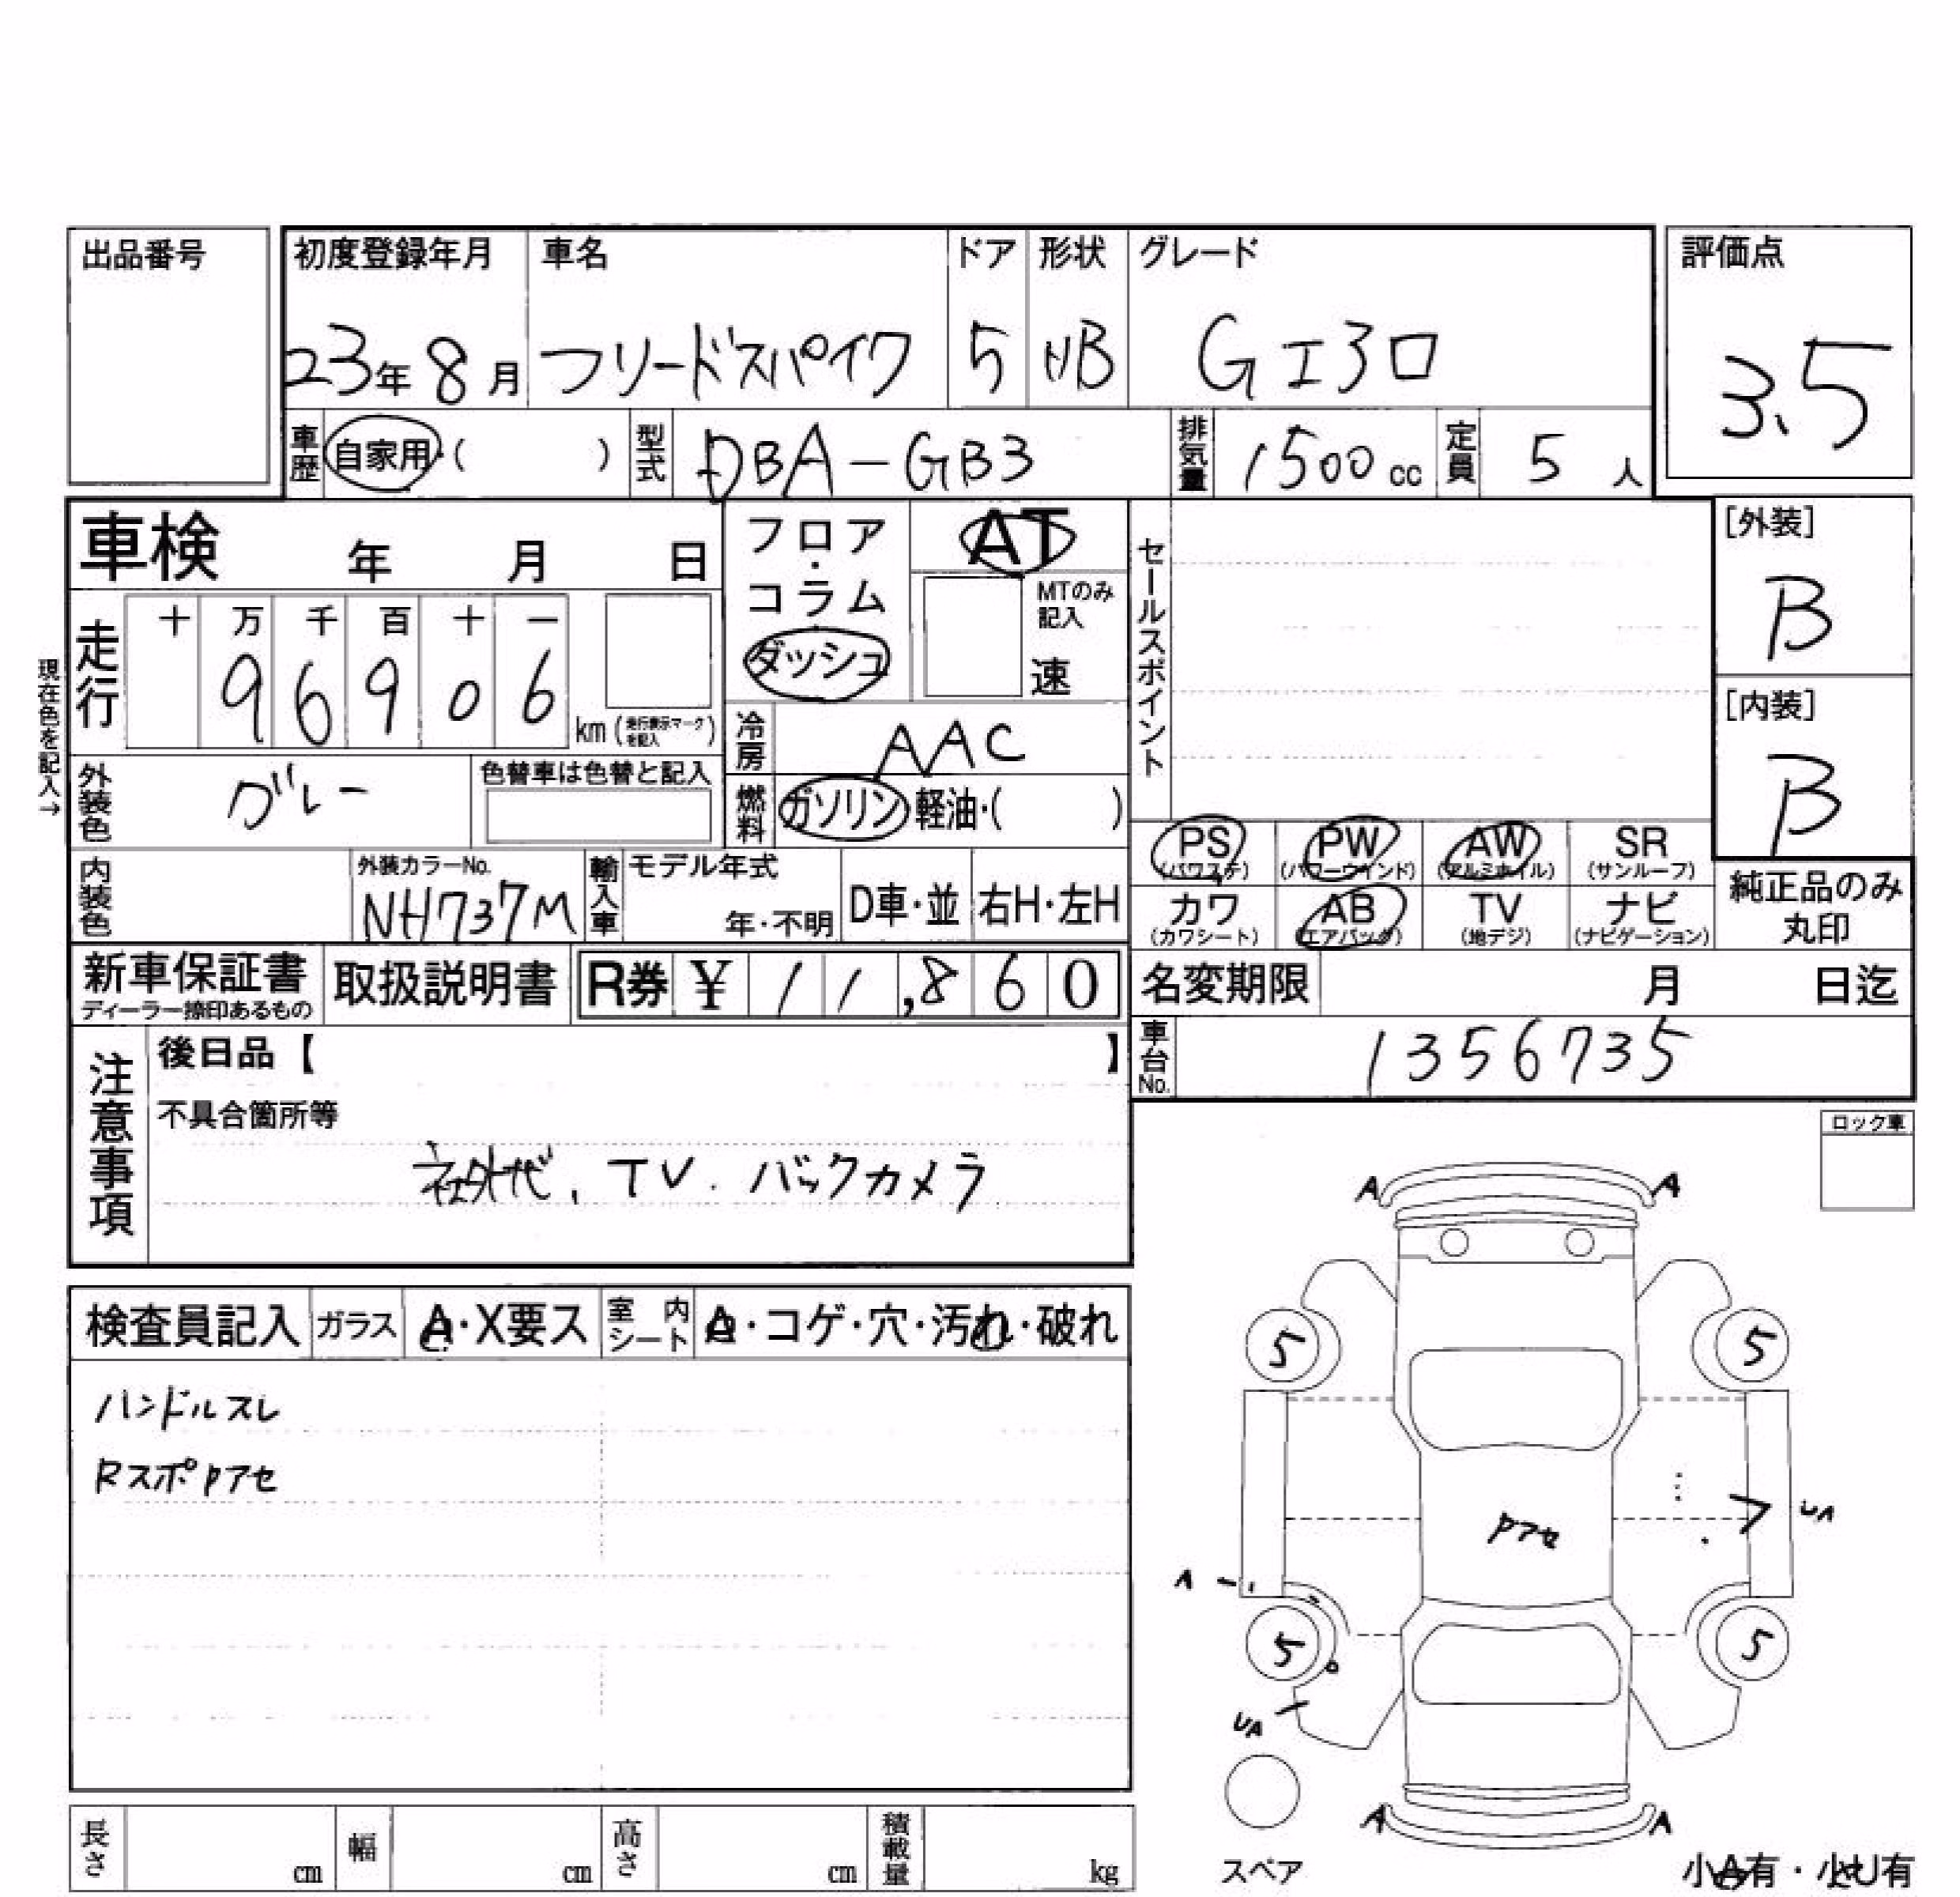 出品番号
初度登録年月 車名 ドア 形状 グレード 評価点
23年8月 フリードスパイク 5 HB Gエアロ 3.5
車歴 自家用・( ) 型式 DBA-GB3 排気量 1500cc 定員 5人
車検 年 月 日
フロア・コラム ダッシュ
AT
MTのみ記入
速
セールスポイント
[外装]
B
現在色を記入→
走行 十 万 千 百 十 一
9 6 9 0 6 km (走行表示マークを記入)
[内装]
B
冷房 AAC
外装色 グレー 色替車は色替と記入
燃料 ガソリン 軽油・( )
PS (パワステ) PW (パワーウインド) AW (アルミホイル) SR (サンルーフ)
カワ (カワシート) AB (エアバック) TV (地デジ) ナビ (ナビゲーション)
純正品のみ丸印
内装色 外装カラーNo. NH737M 輸入車 モデル年式 年・不明 D車・並 右H・左H
新車保証書 ディーラー捺印あるもの 取扱説明書 R券 ¥ 11,860
名変期限 月 日迄
車台No. 1356735
注意事項
後日品【 】
不具合箇所等
社外ナビ、TV. バックカメラ
ロック車
A A
検査員記入 ガラス A・X要ス 室内シート ・コゲ・穴・汚れ・破れ
ハンドルスレ
Rスポpアセ
5 5
pアセ
UA
A
5 5
UA
スペア
A A
長さ cm 幅 cm 高さ cm 積載量 kg
小A有・小U有